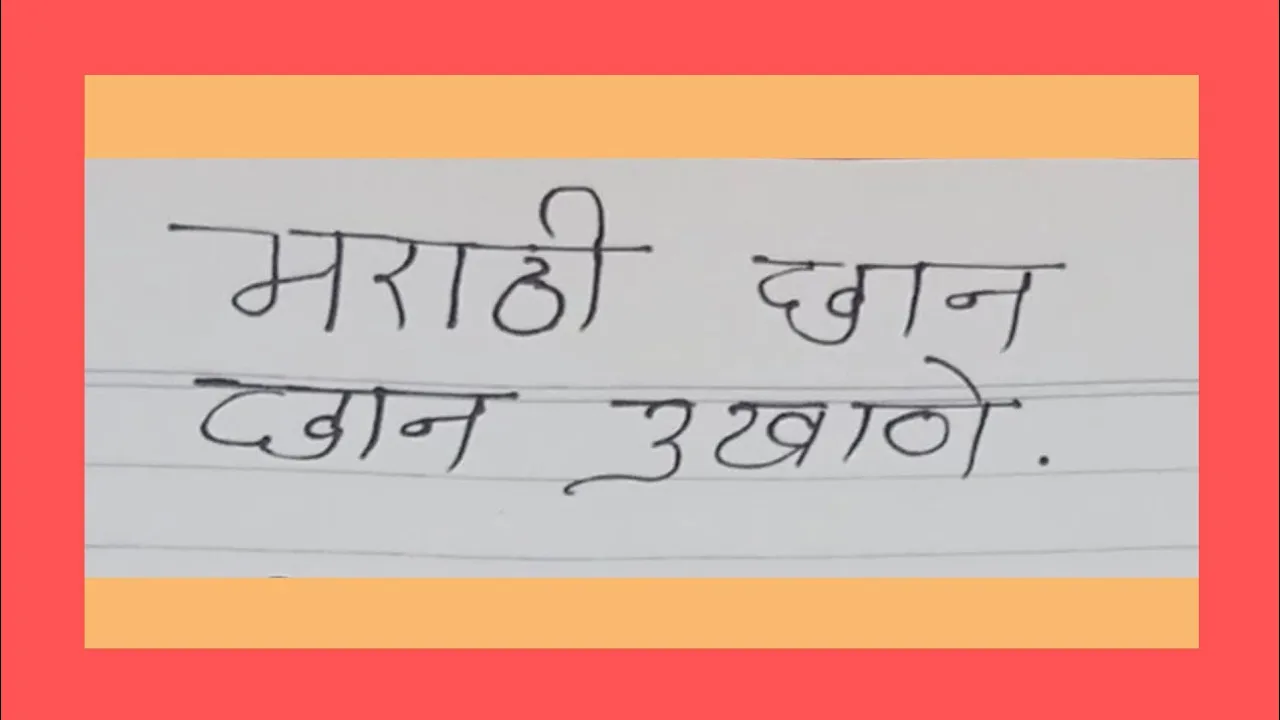 मराठी छान
छान उखाणे.